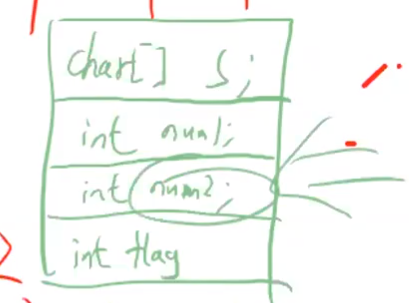 char[] s;
int num1;
int num2;
int flag